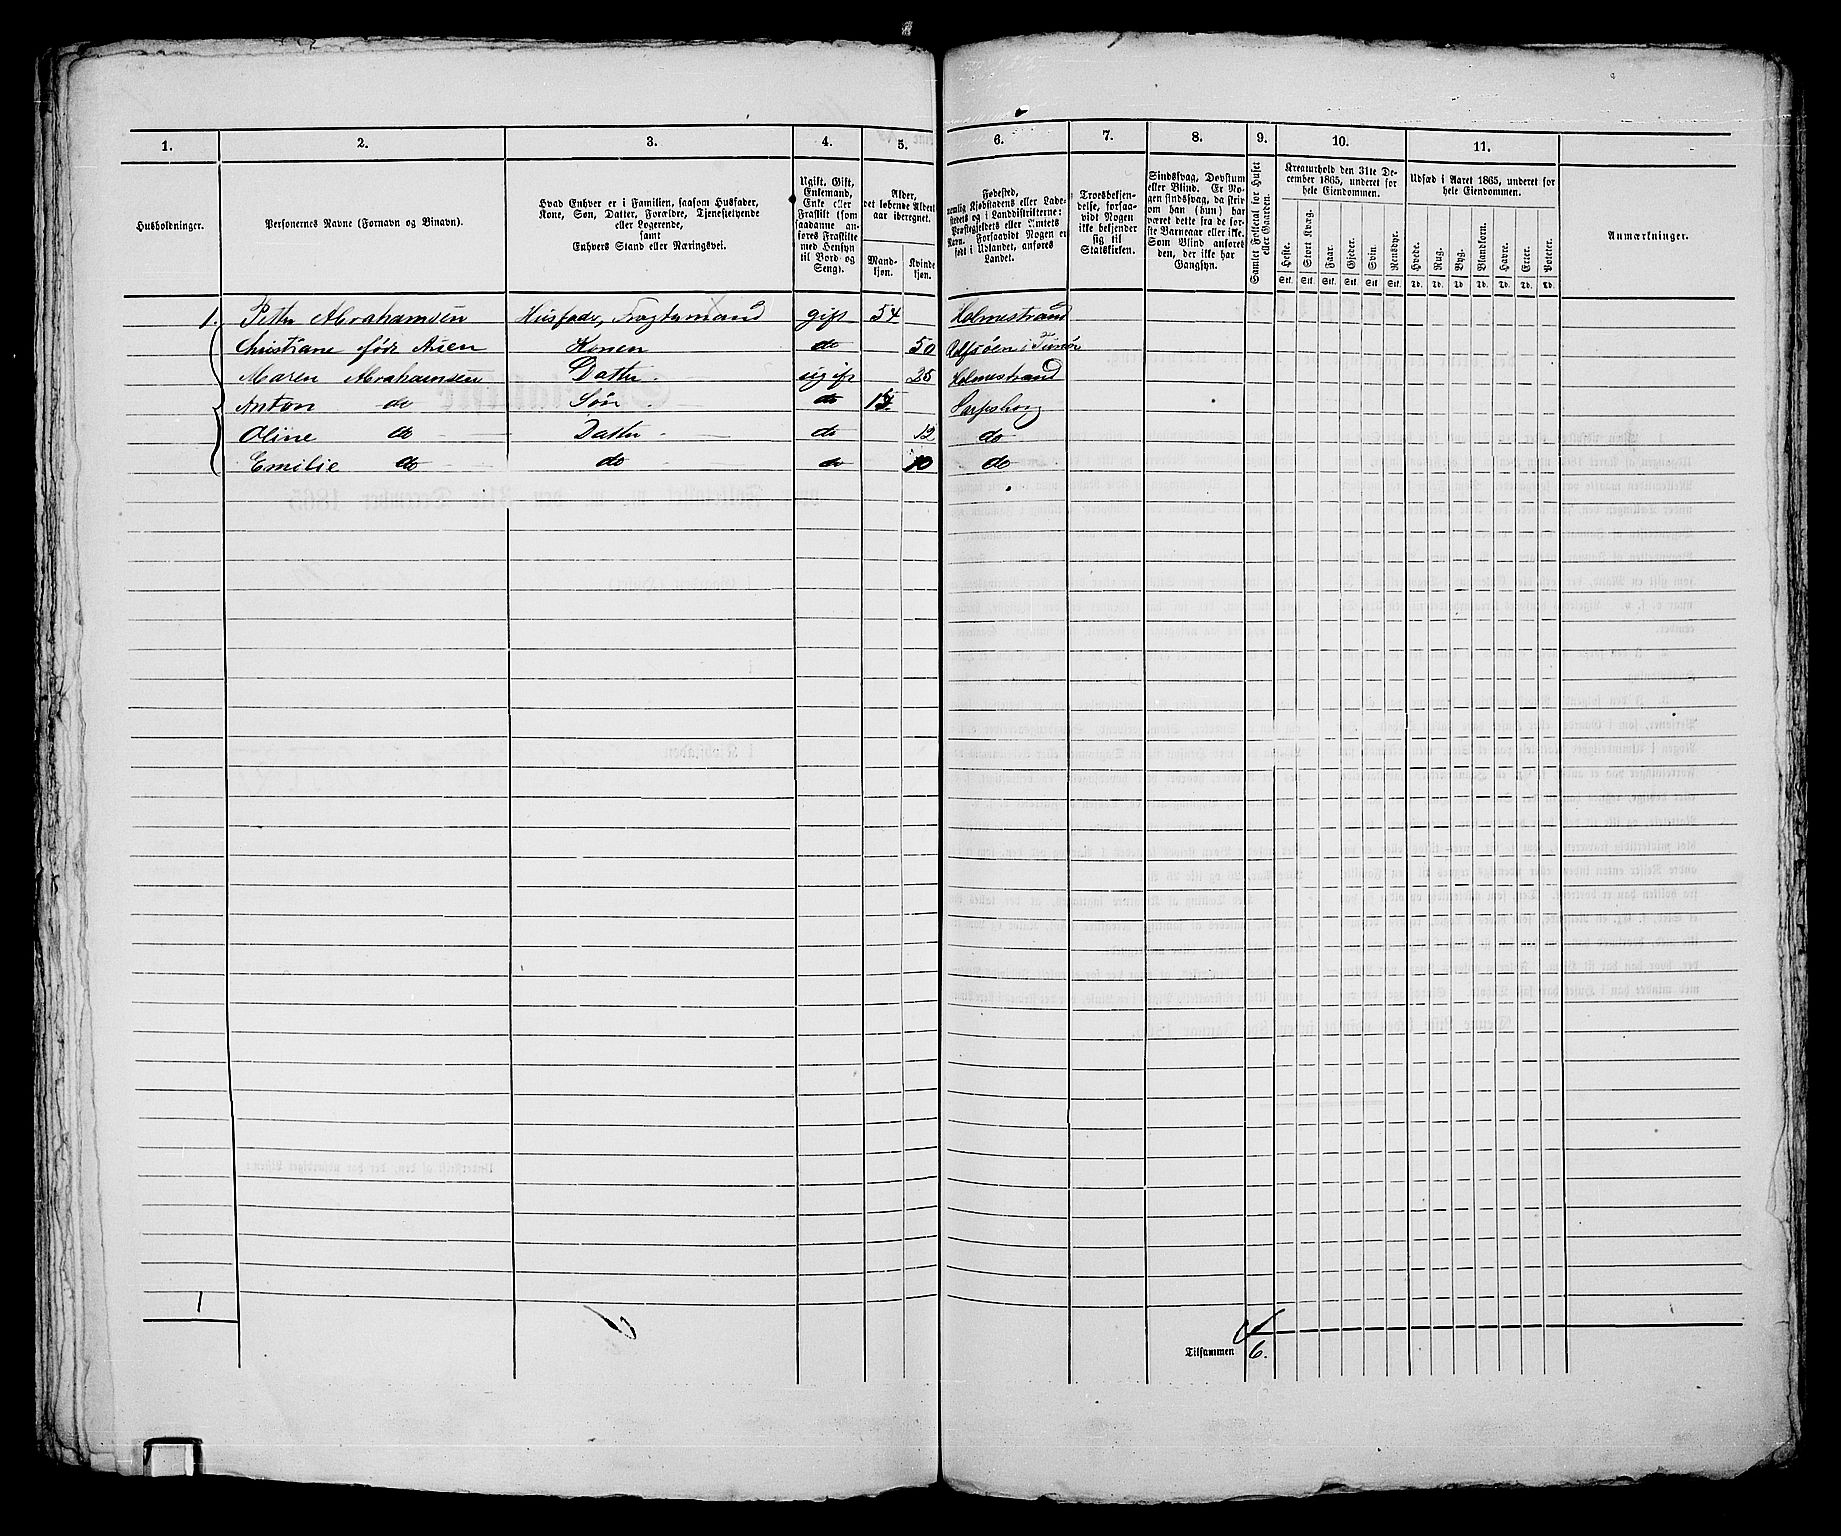 1. 2. 3. 4. 5. 6. 7. 8. 9. 10. 11.
Husholdninger.
Personernes Navne (Fornavn og Binavn).
Hvad Enhver er i Familien, saasom Husfader,
Kone, Søn, Datter, Forældre, Tjenestetyende
eller Logerende,
samt
Enhvers Stand eller Næringsvei.
Ugift, Gift,
Enkemand,
Enke eller
Fraskilt (som
saadanne an-
føres Fraskilte
med Hensyn
til Bord og
Seng).
Alder,
det løbende Alders-
aar iberegnet.
Mand-
kjøn.
Kvinde-
kjøn.
Fødested,
nemlig Kjøbstadens eller Lade-
stedets og i Landdistrikterne:
Præstegjeldets eller Amtets
Navn. Forsaavidt Nogen er
født i Udlandet, anføres
Landet.
Troesbekjen-
delse, forsaa-
vidt Nogen
ikke bekjender
sig til
Statskirken.
Sindssvag, Døvstum
eller Blind. Er No-
gen sindssvag, da skri-
ves om han (hun) har
været dette fra de før-
ste Barneaar eller ikke.
Som Blind anføres
den, der ikke har
Gangsyn.
Samlet Folketal for Huset
eller Gaarden.
Kreaturhold den 31te De-
cember 1865, underet for
hele Eiendommen.
Heste.
Stort Kvæg.
Faar.
Gjeder.
Svin.
Rensdyr.
Stk. Stk. Stk. Stk. Stk. Stk.
Udsæd i Aaret 1865, underet for
hele Eiendommen.
Hvede.
Rug.
Byg.
Blandkorn.
Havre.
Erter.
Poteter.
Td. Td. Td. Td. Td. Td. Td.
Anmærkninger.
1. Petter Abrahamsen Husfader, gift 54 Holmestrand
Christiane født Konen do 50
Maren Abrahamsen Datter. ugift 25 Holmestrand
Anton do Søn do Sarpsborg
Oline do Datter do 12 do
Emilie do do do 10 do
1
Tilsammen 6.